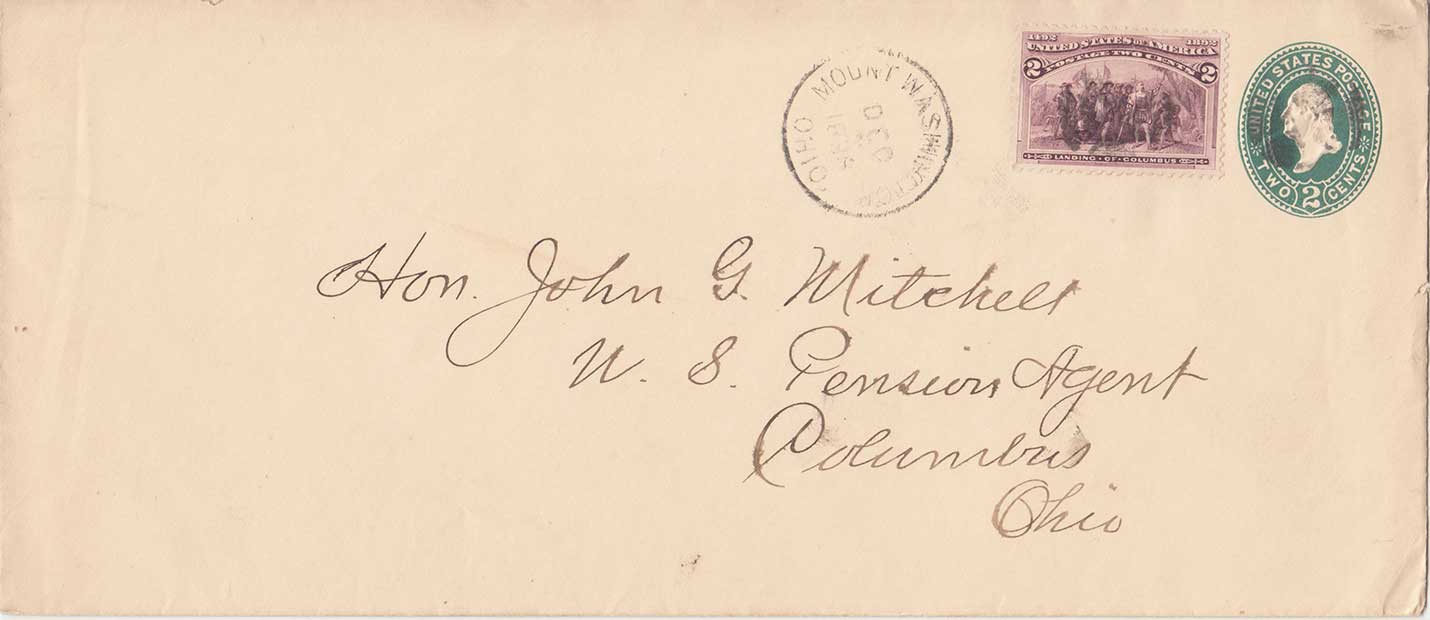 MOUNT WASHINGTON OHIO
DEC
1492 1892
UNITED STATES OF AMERICA
POSTAGE TWO CENTS
2 2
LANDING OF COLUMBUS
UNITED STATES POSTAGE
TWO 2 CENTS
Hon. John G. Mitchell
U. S. Pension Agent
Columbus
Ohio